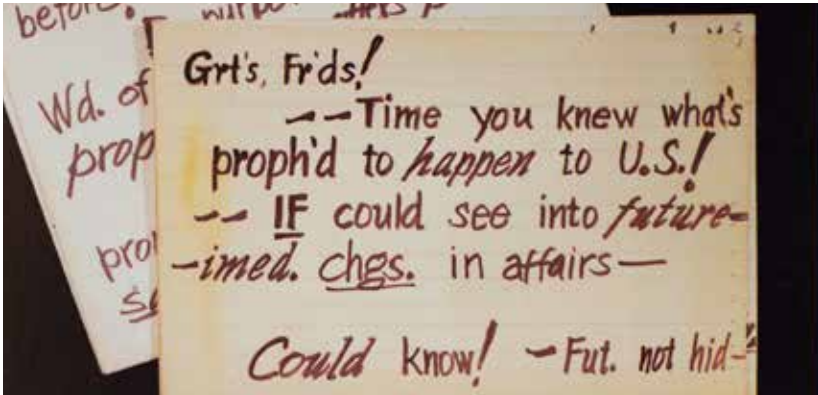 before!
Wd. of
prop
Grt's, Fr'ds!
--Time you knew what's
proph'd to happen to U.S.!
-- IF could see into future-
-imed. chgs. in affairs—
Could know! - Fut. not hid-